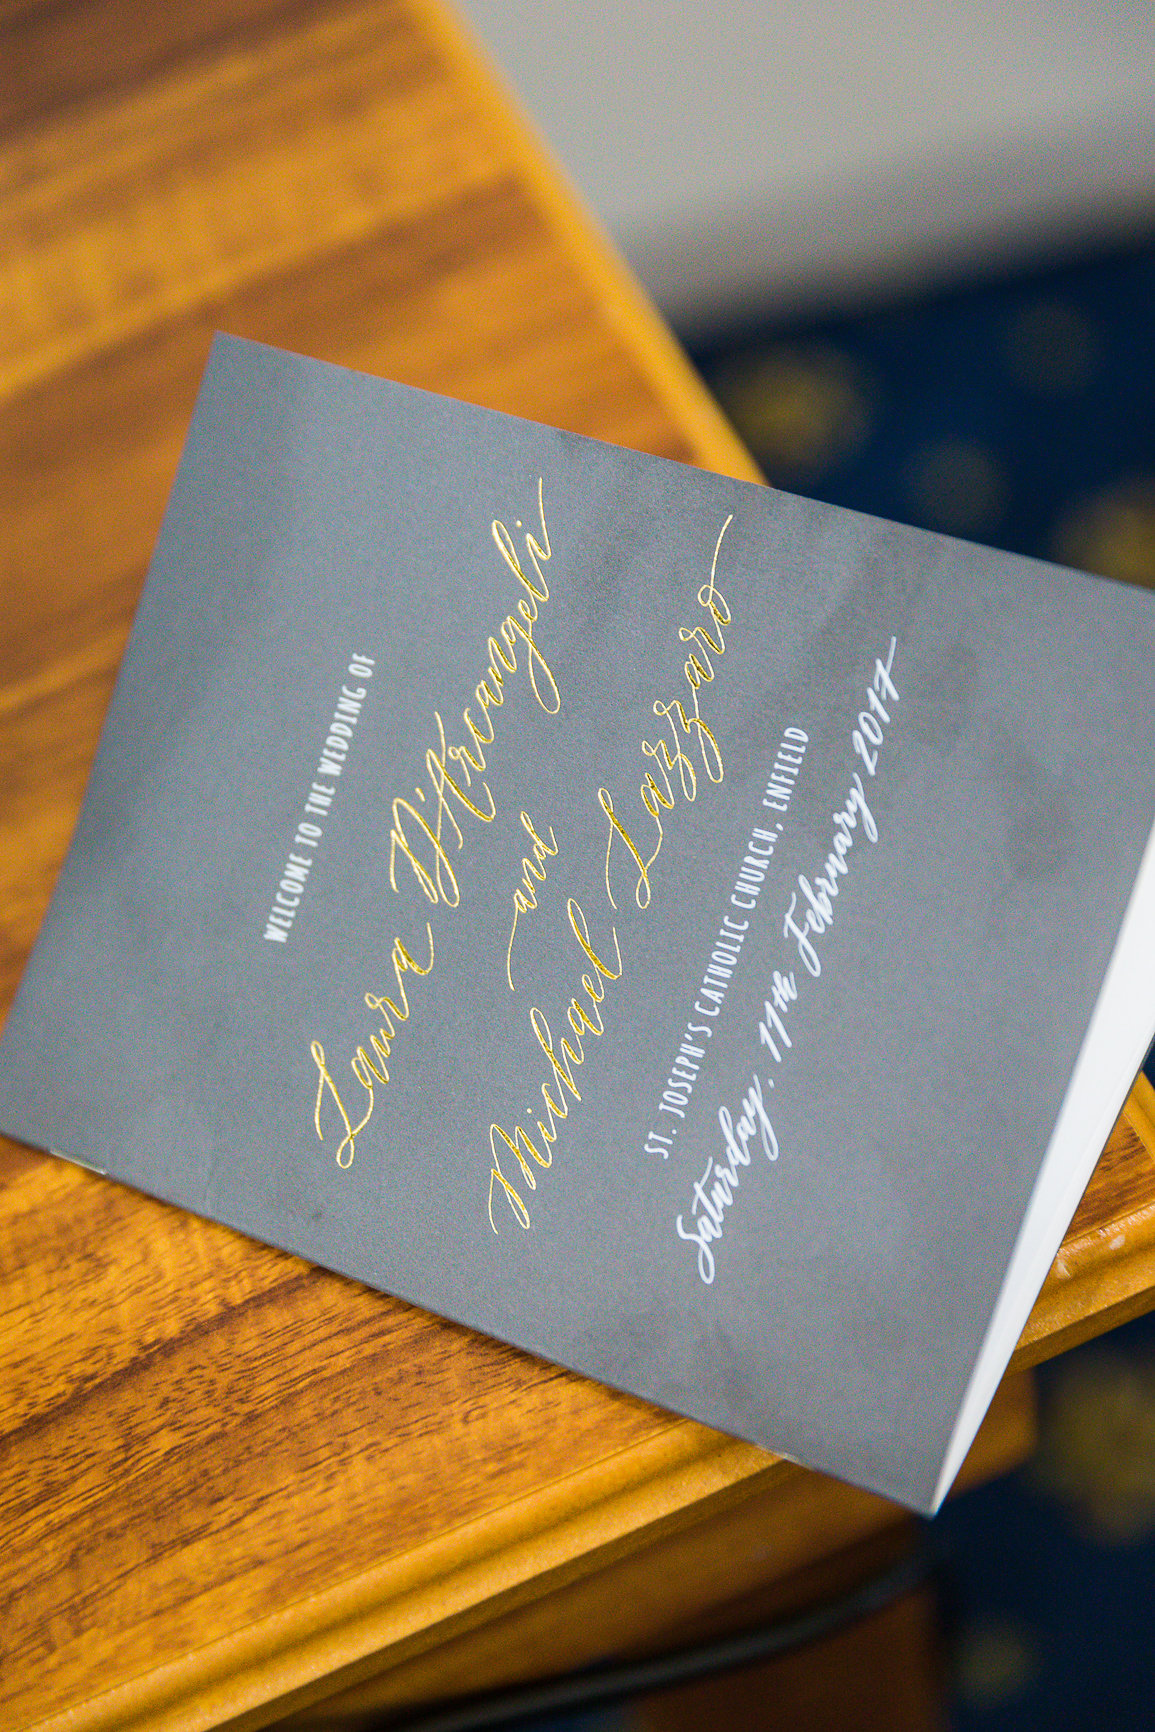 WELCOME TO THE WEDDING OF
Laura D'Arcangeli
and
Michael Lazzaro
ST. JOSEPH'S CATHOLIC CHURCH, ENFIELD
Saturday, 11th February 2017